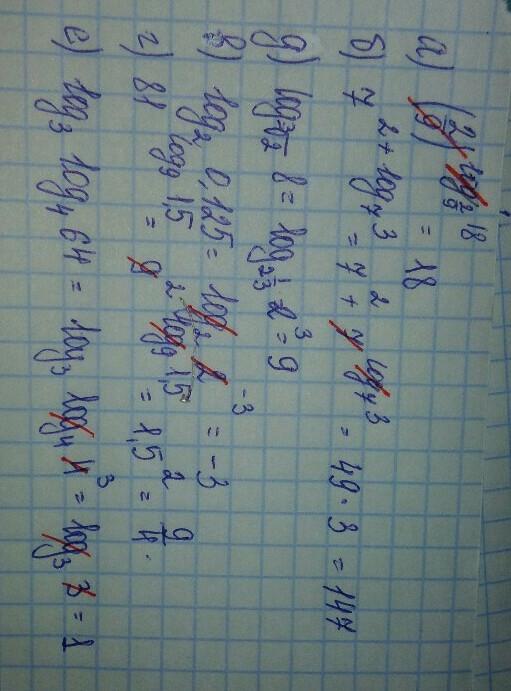 а) (2/9)^log_{2/9} 18 = 18
б) 7^{2+log_7 3} = 7^2 + 7^{log_7 3} = 49 · 3 = 147
д) log_{∛2} 8 = log_{2^{1/3}} 2^3 = 9
в) log_2 0,125 = log_2 2^{-3} = -3
г) 81^{log_9 1,5} = 9^{2·log_9 1,5} = 1,5^2 = 9/4.
е) log_3 log_4 64 = log_3 log_4 4^3 = log_3 3 = 1